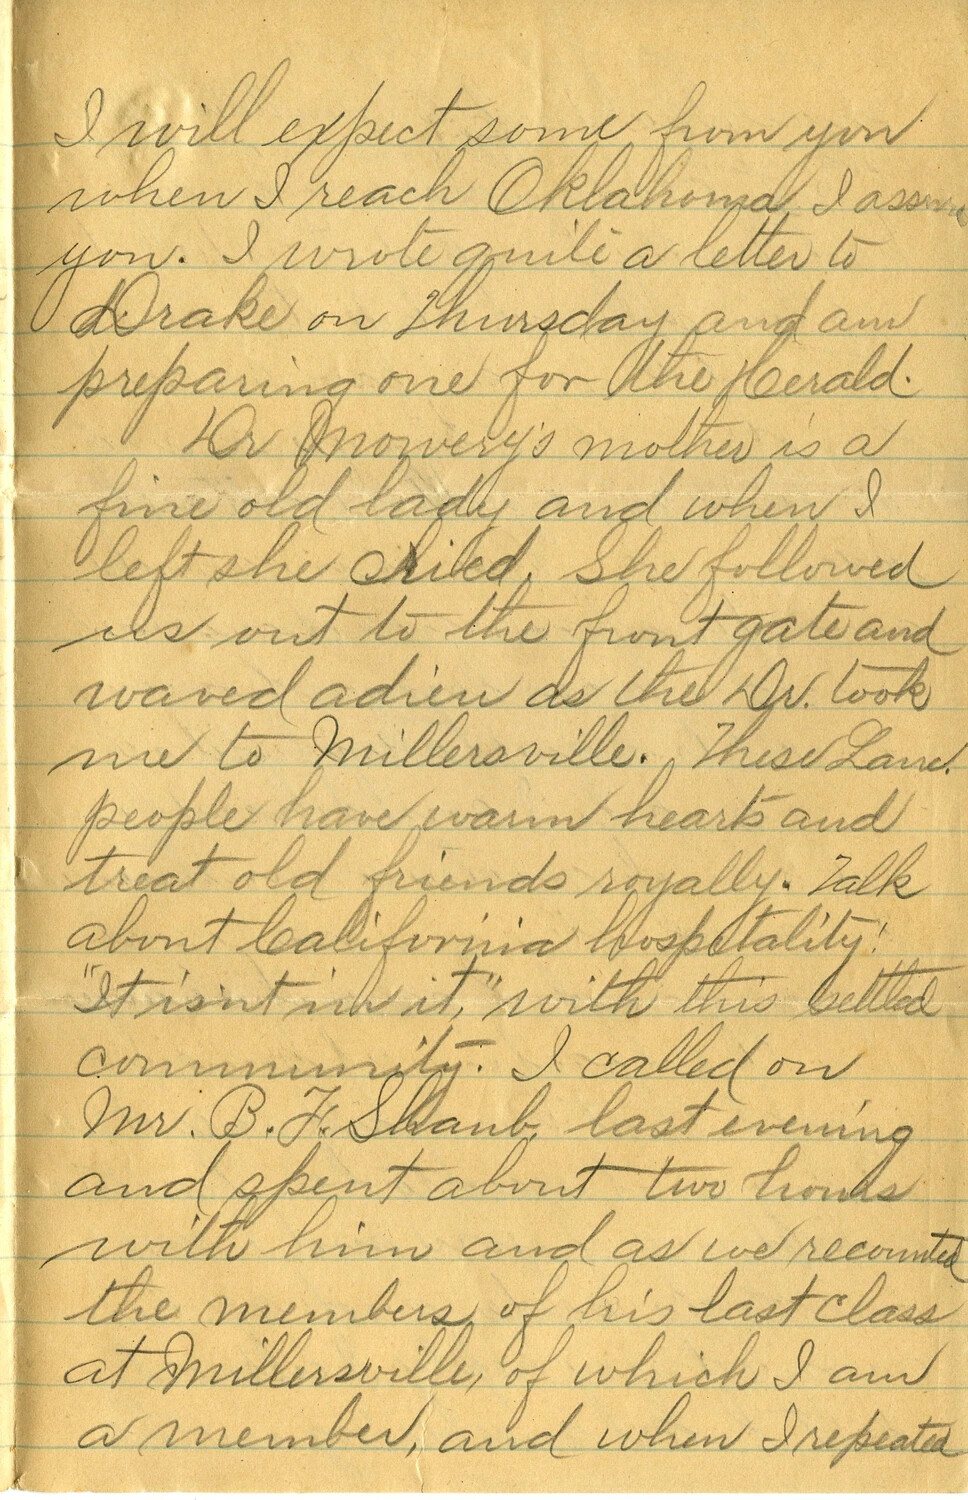 I will expect some from you
when I reach Oklahoma I assure
you. I wrote quite a letter to
Drake on Thursday and am
preparing one for the Herald.
Dr Mowery's mother is a
fine old lady and when I
left she cried. She followed
us out to the front gate and
waved adieu as the Dr. took
me to Millersville. These Lanc.
people have warm hearts and
treat old friends royally. Talk
about California hospitality!
"It isn't in it," with this settled
community. I called on
Mr. B. F. Shaub last evening
and spent about two hours
with him and as we recounted
the members of his last class
at Millersville, of which I am
a member, and when I repeated